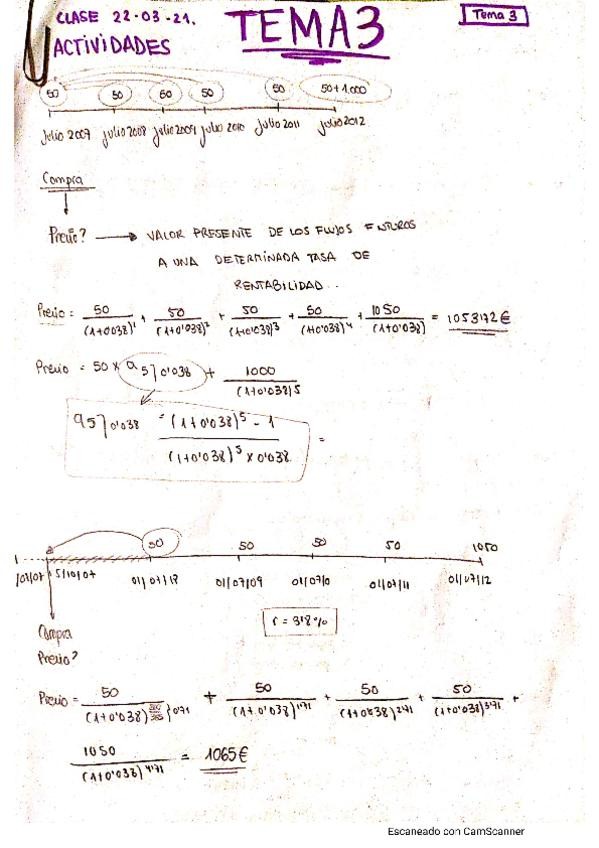 CLASE 22-03-21. TEMA 3 Tema 3
ACTIVIDADES
50 50 50 50 50 50+1.000
Julio 2007 Julio 2008 Julio 2009 Julio 2010 Julio 2011 Julio 2012
Compra
Precio? → VALOR PRESENTE DE LOS FLUJOS FUTUROS
A UNA DETERMINADA TASA DE
RENTABILIDAD..
Precio = 50/(1+0'038)^1 + 50/(1+0'038)^2 + 50/(1+0'038)^3 + 50/(1+0'038)^4 + 1050/(1+0'038) = 1053'72€
Precio = 50 × a5⌉0'038 + 1000/(1+0'038)5
a5⌉0'038 = (1+0'038)^5 - 1/(1+0'038)^5 × 0'038 =
50 50 50 50 1050
5/10/07 01/07/09 01/07/11 01/07/12
r = 3'8%
Compra
Precio?
Precio = 50/(1+0'038) } 0'71 + 50/(1+0'038)^1'71 + 50/(1+0'038)^2'71 + 50/(1+0'038)^3'71 +
1050/(1+0'038)^4'71 = 1065€
Escaneado con CamScanner